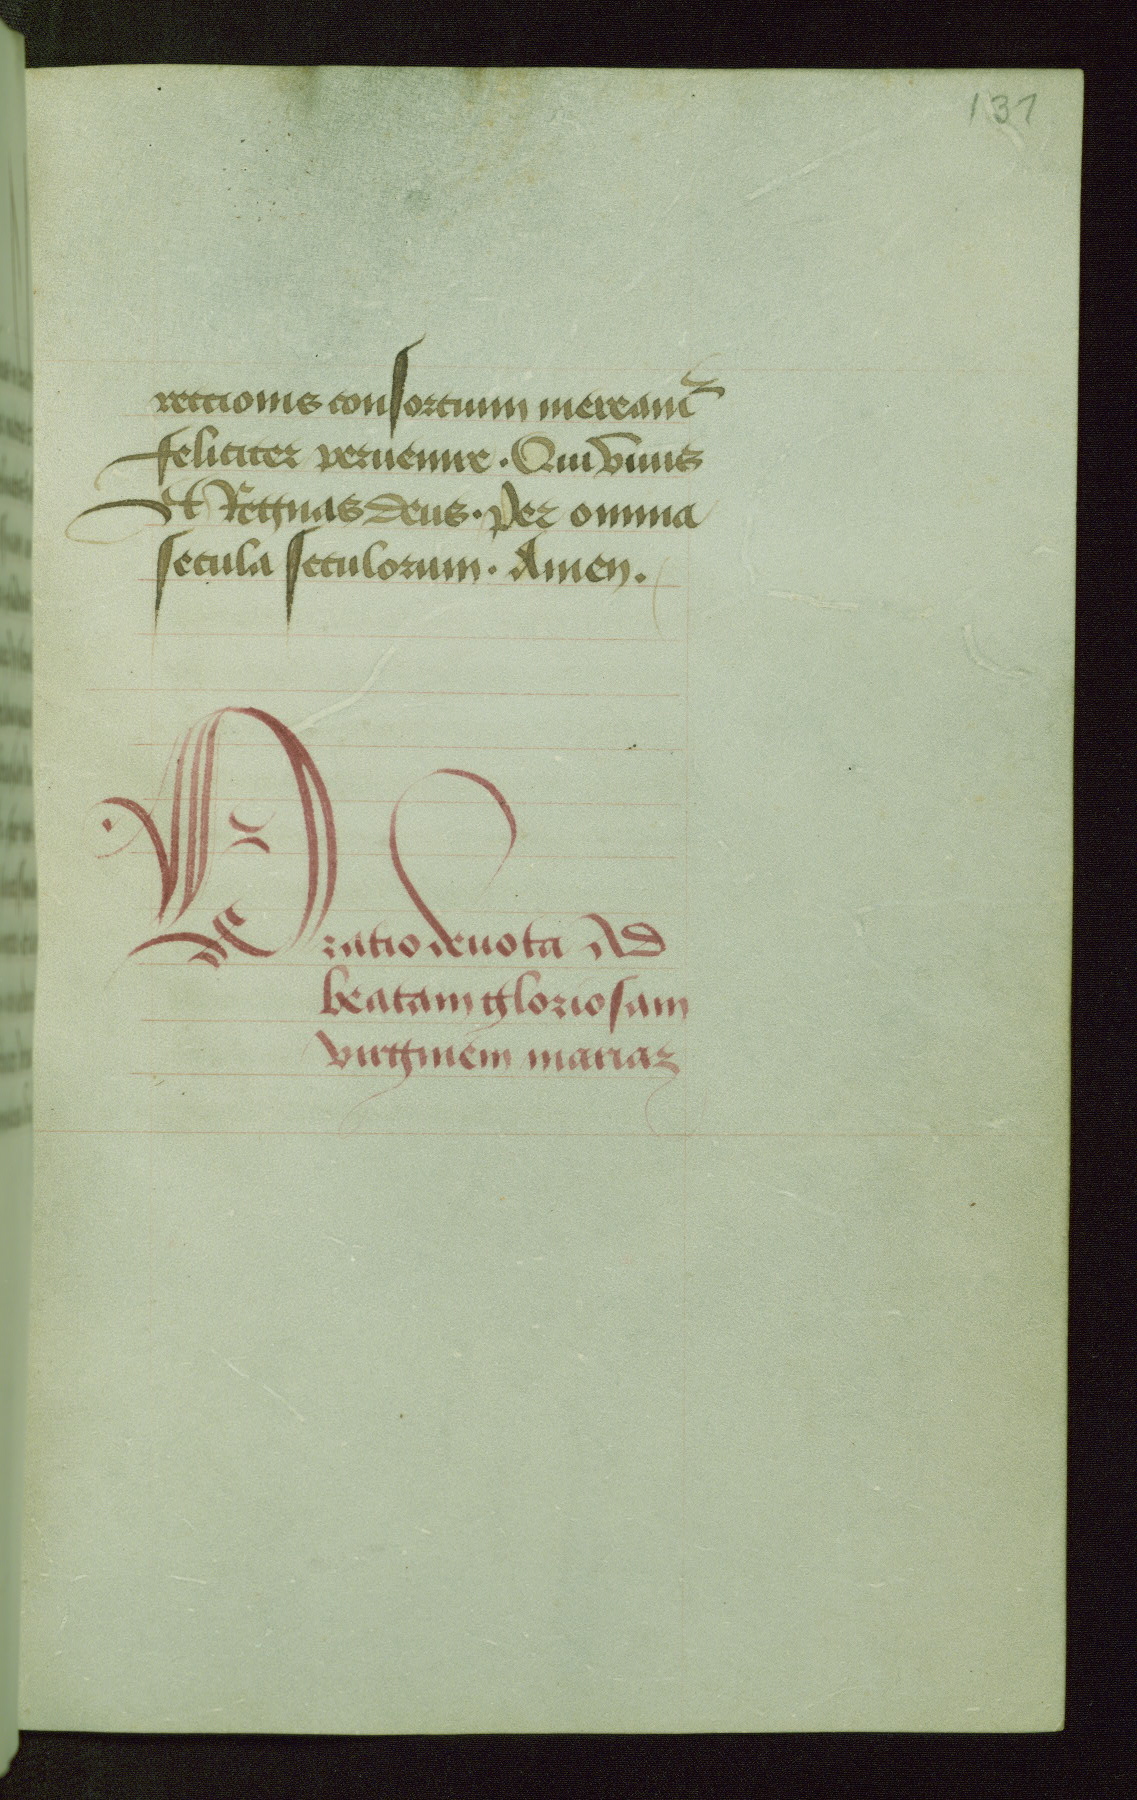 137
rectionis consortium mereamur
feliciter peruenire. Qui viuis
Et Regnas deus. Per omnia
secula seculorum. Amen.
Oratio deuota Ad
beatam gloriosam
virginem mariaz